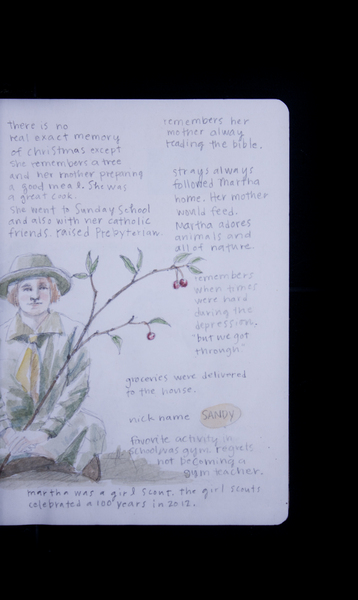 there is no
real exact memory
of christmas except
she remembers a tree
and her mother preparing
a good meal. She was
a great cook.
She went to Sunday School
and also with her catholic
friends. raised Presbyterian.
remembers her
mother alway
reading the bible.
strays always
followed Martha
home. Her mother
would feed.
Martha adores
animals and
all of nature.
remembers
when times
were hard
during the
depression,
"but we got
through"
groceries were delivered
to the house.
nick name SANDY
favorite activity in
school was gym. regrets
not becoming a
gym teacher.
martha was a girl scout. the girl scouts
celebrated a 100 years in 2012.